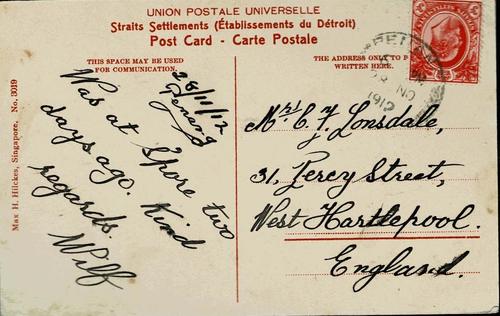 UNION POSTALE UNIVERSELLE
Straits Settlements (Établissements du Détroit)
Post Card - Carte Postale
THIS SPACE MAY BE USED
FOR COMMUNICATION.
THE ADDRESS ONLY TO
WRITTEN HERE.
Max H. Hilckes, Singapore, No. 3019
26/11/12
Penang
Was at S'pore two
days ago. Kind
regards.
Wilf
PENANG
NO
1912
Mrs C. F. Lonsdale,
31, Percy Street,
West Hartlepool.
England.